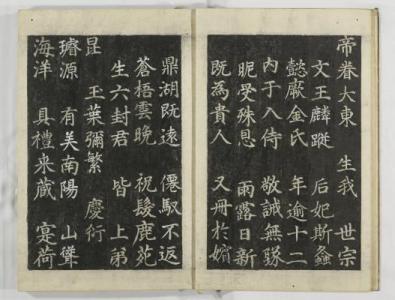 帝眷大東 生我 世宗
文王麟蹤 后妃斯螽
懿厥金氏 年逾十二
内于入侍 敬誠無隊
昵受殊恩 雨露日新
既為貴人 又冊於嬪
鼎湖既遠 僊馭不返
蒼梧雲晚 祝髮鹿苑
生六封君 皆上弟
昆 玉葉彌繁 慶衍
璿源 有美南陽 山聳
海洋 具禮來葳 寔荷